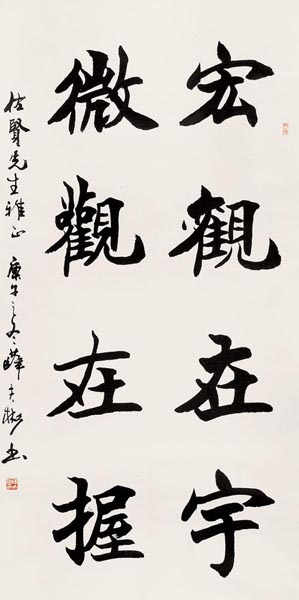 宏觀在宇
微觀在握
佐賢先生雅正 庚午之冬 薛夫彬書